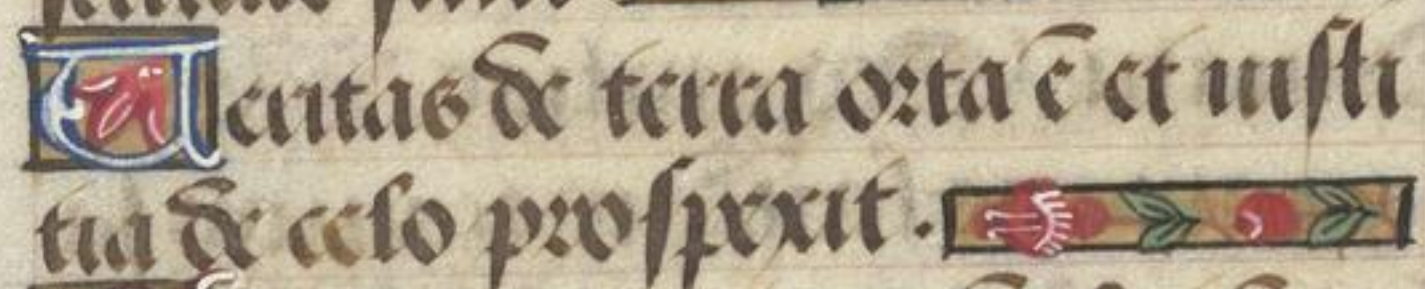 Veritas de terra orta ē et iusti
tia de celo prospexit.